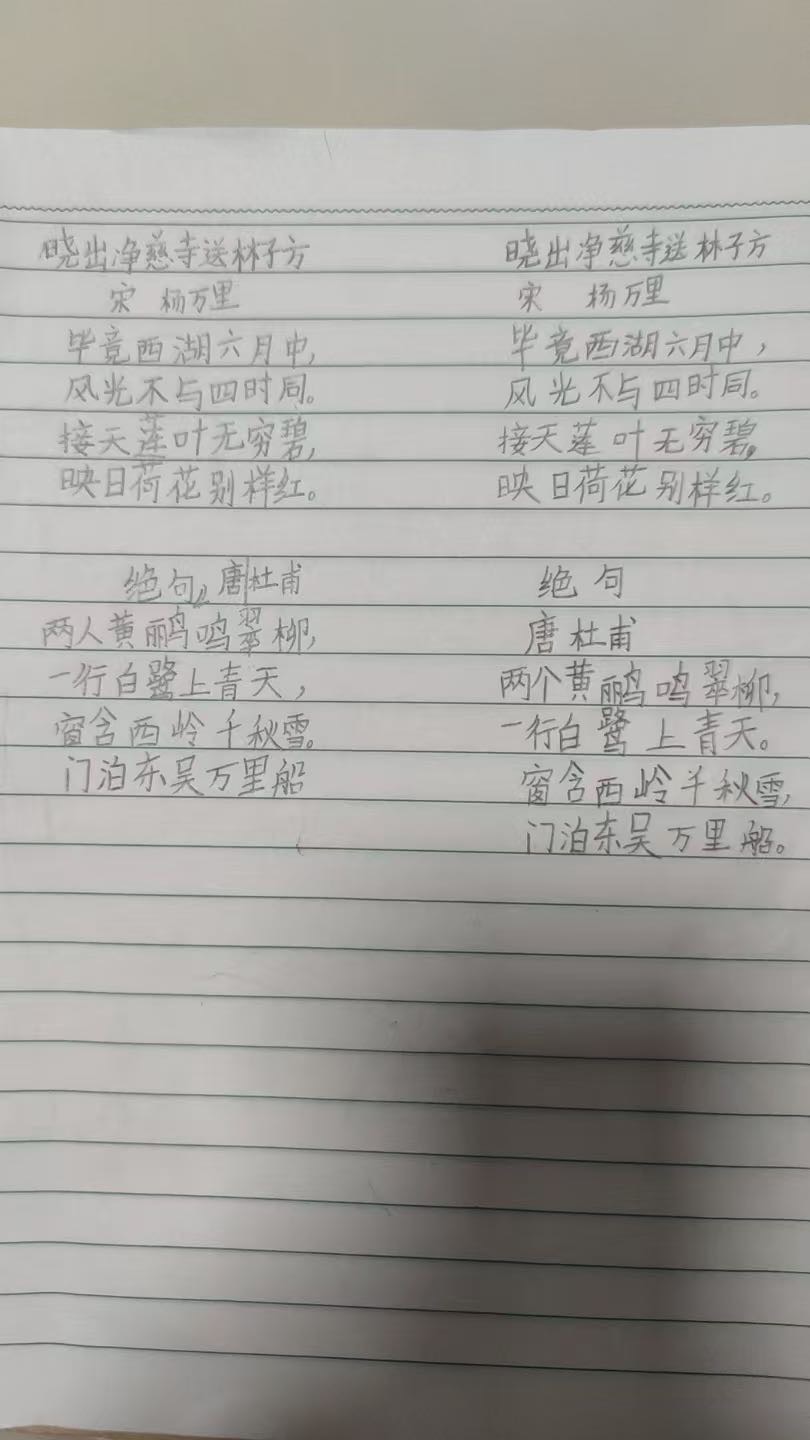 晓出净慈寺送林子方
宋 杨万里
毕竟西湖六月中,
风光不与四时同。
接天莲叶无穷碧,
映日荷花别样红。
绝句。唐杜甫
两人黄鹂鸣翠柳,
一行白鹭上青天,
窗含西岭千秋雪。
门泊东吴万里船
晓出净慈寺送林子方
宋 杨万里
毕竟西湖六月中,
风光不与四时同。
接天莲叶无穷碧,
映日荷花别样红。
绝句
唐杜甫
两个黄鹂鸣翠柳,
一行白鹭上青天。
窗含西岭千秋雪,
门泊东吴万里船。